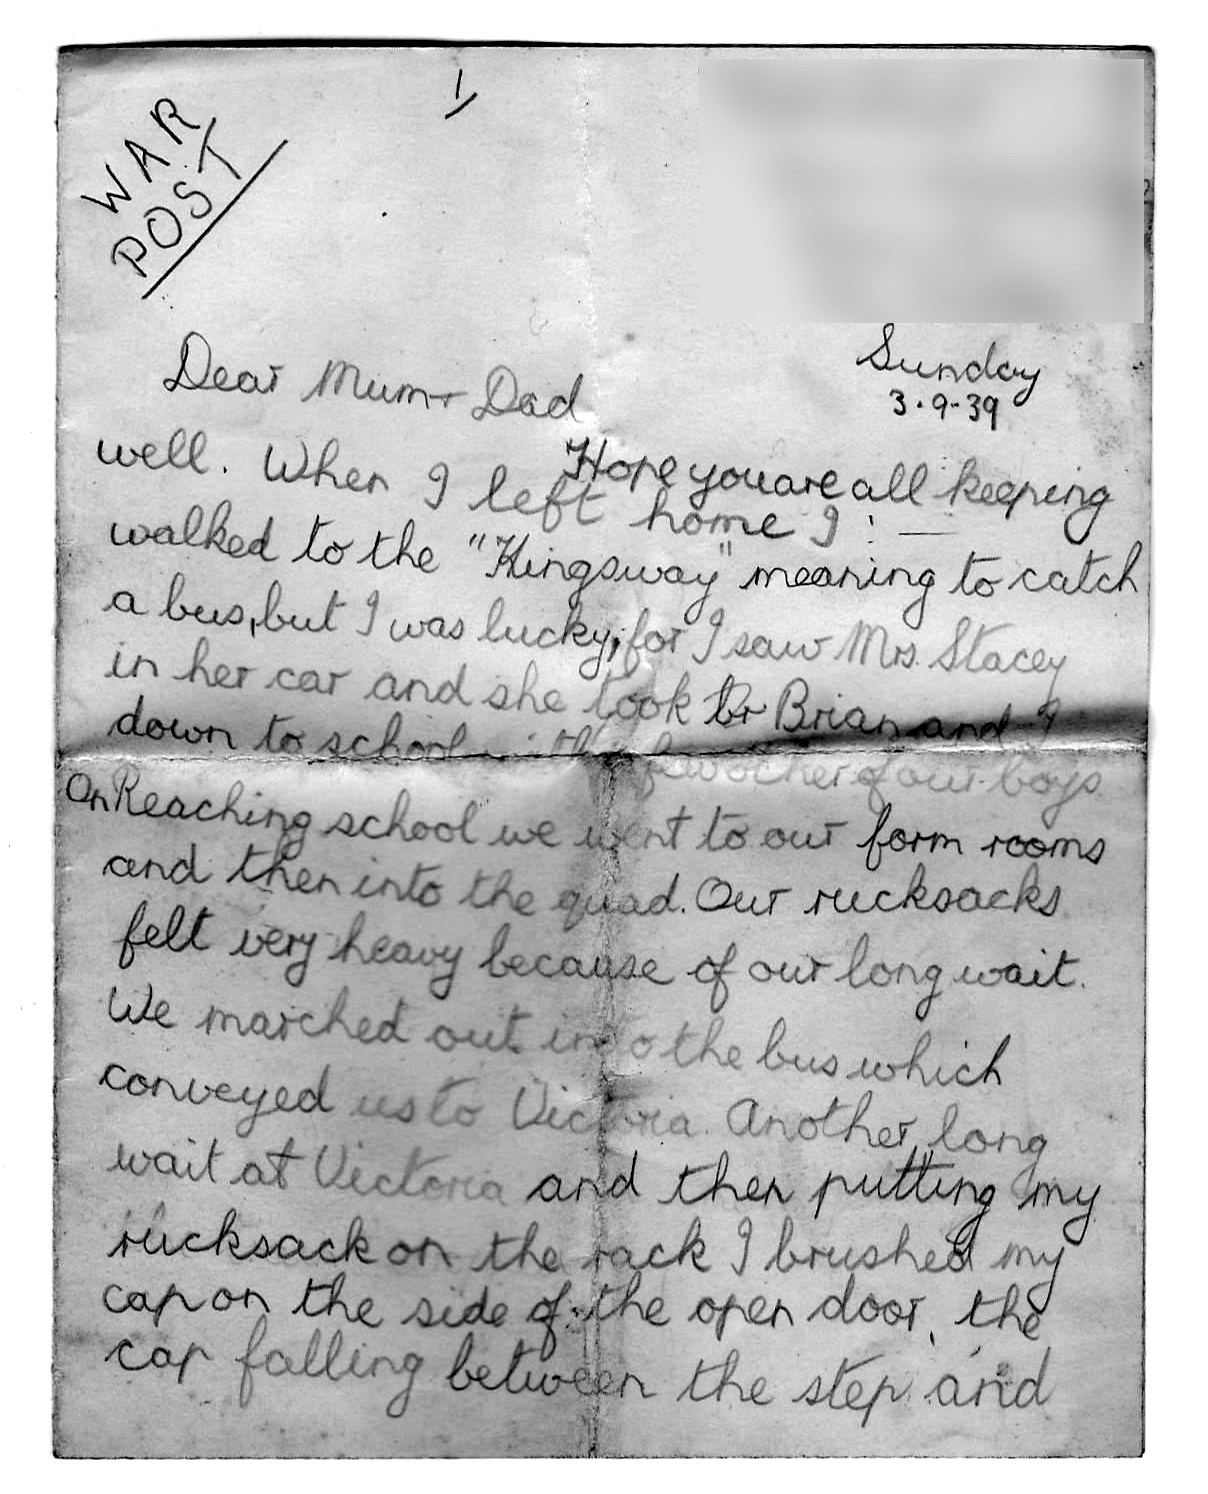 1
WAR
POST
Sunday
3.9.39
Dear Mum + Dad
Hope you are all keeping
well. When I left home I :—
walked to the "Kingsway" meaning to catch
a bus, but I was lucky, for I saw Mrs. Stacey
in her car and she took Brian and I
down to school of our boys
On Reaching school we went to our form rooms
and then into the quad. Our rucksacks
felt very heavy because of our long wait.
We marched out into the bus which
conveyed us to Victoria. Another long
wait at Victoria and then putting my
rucksack on the rack I brushed my
cap on the side of the open door, the
cap falling between the step and